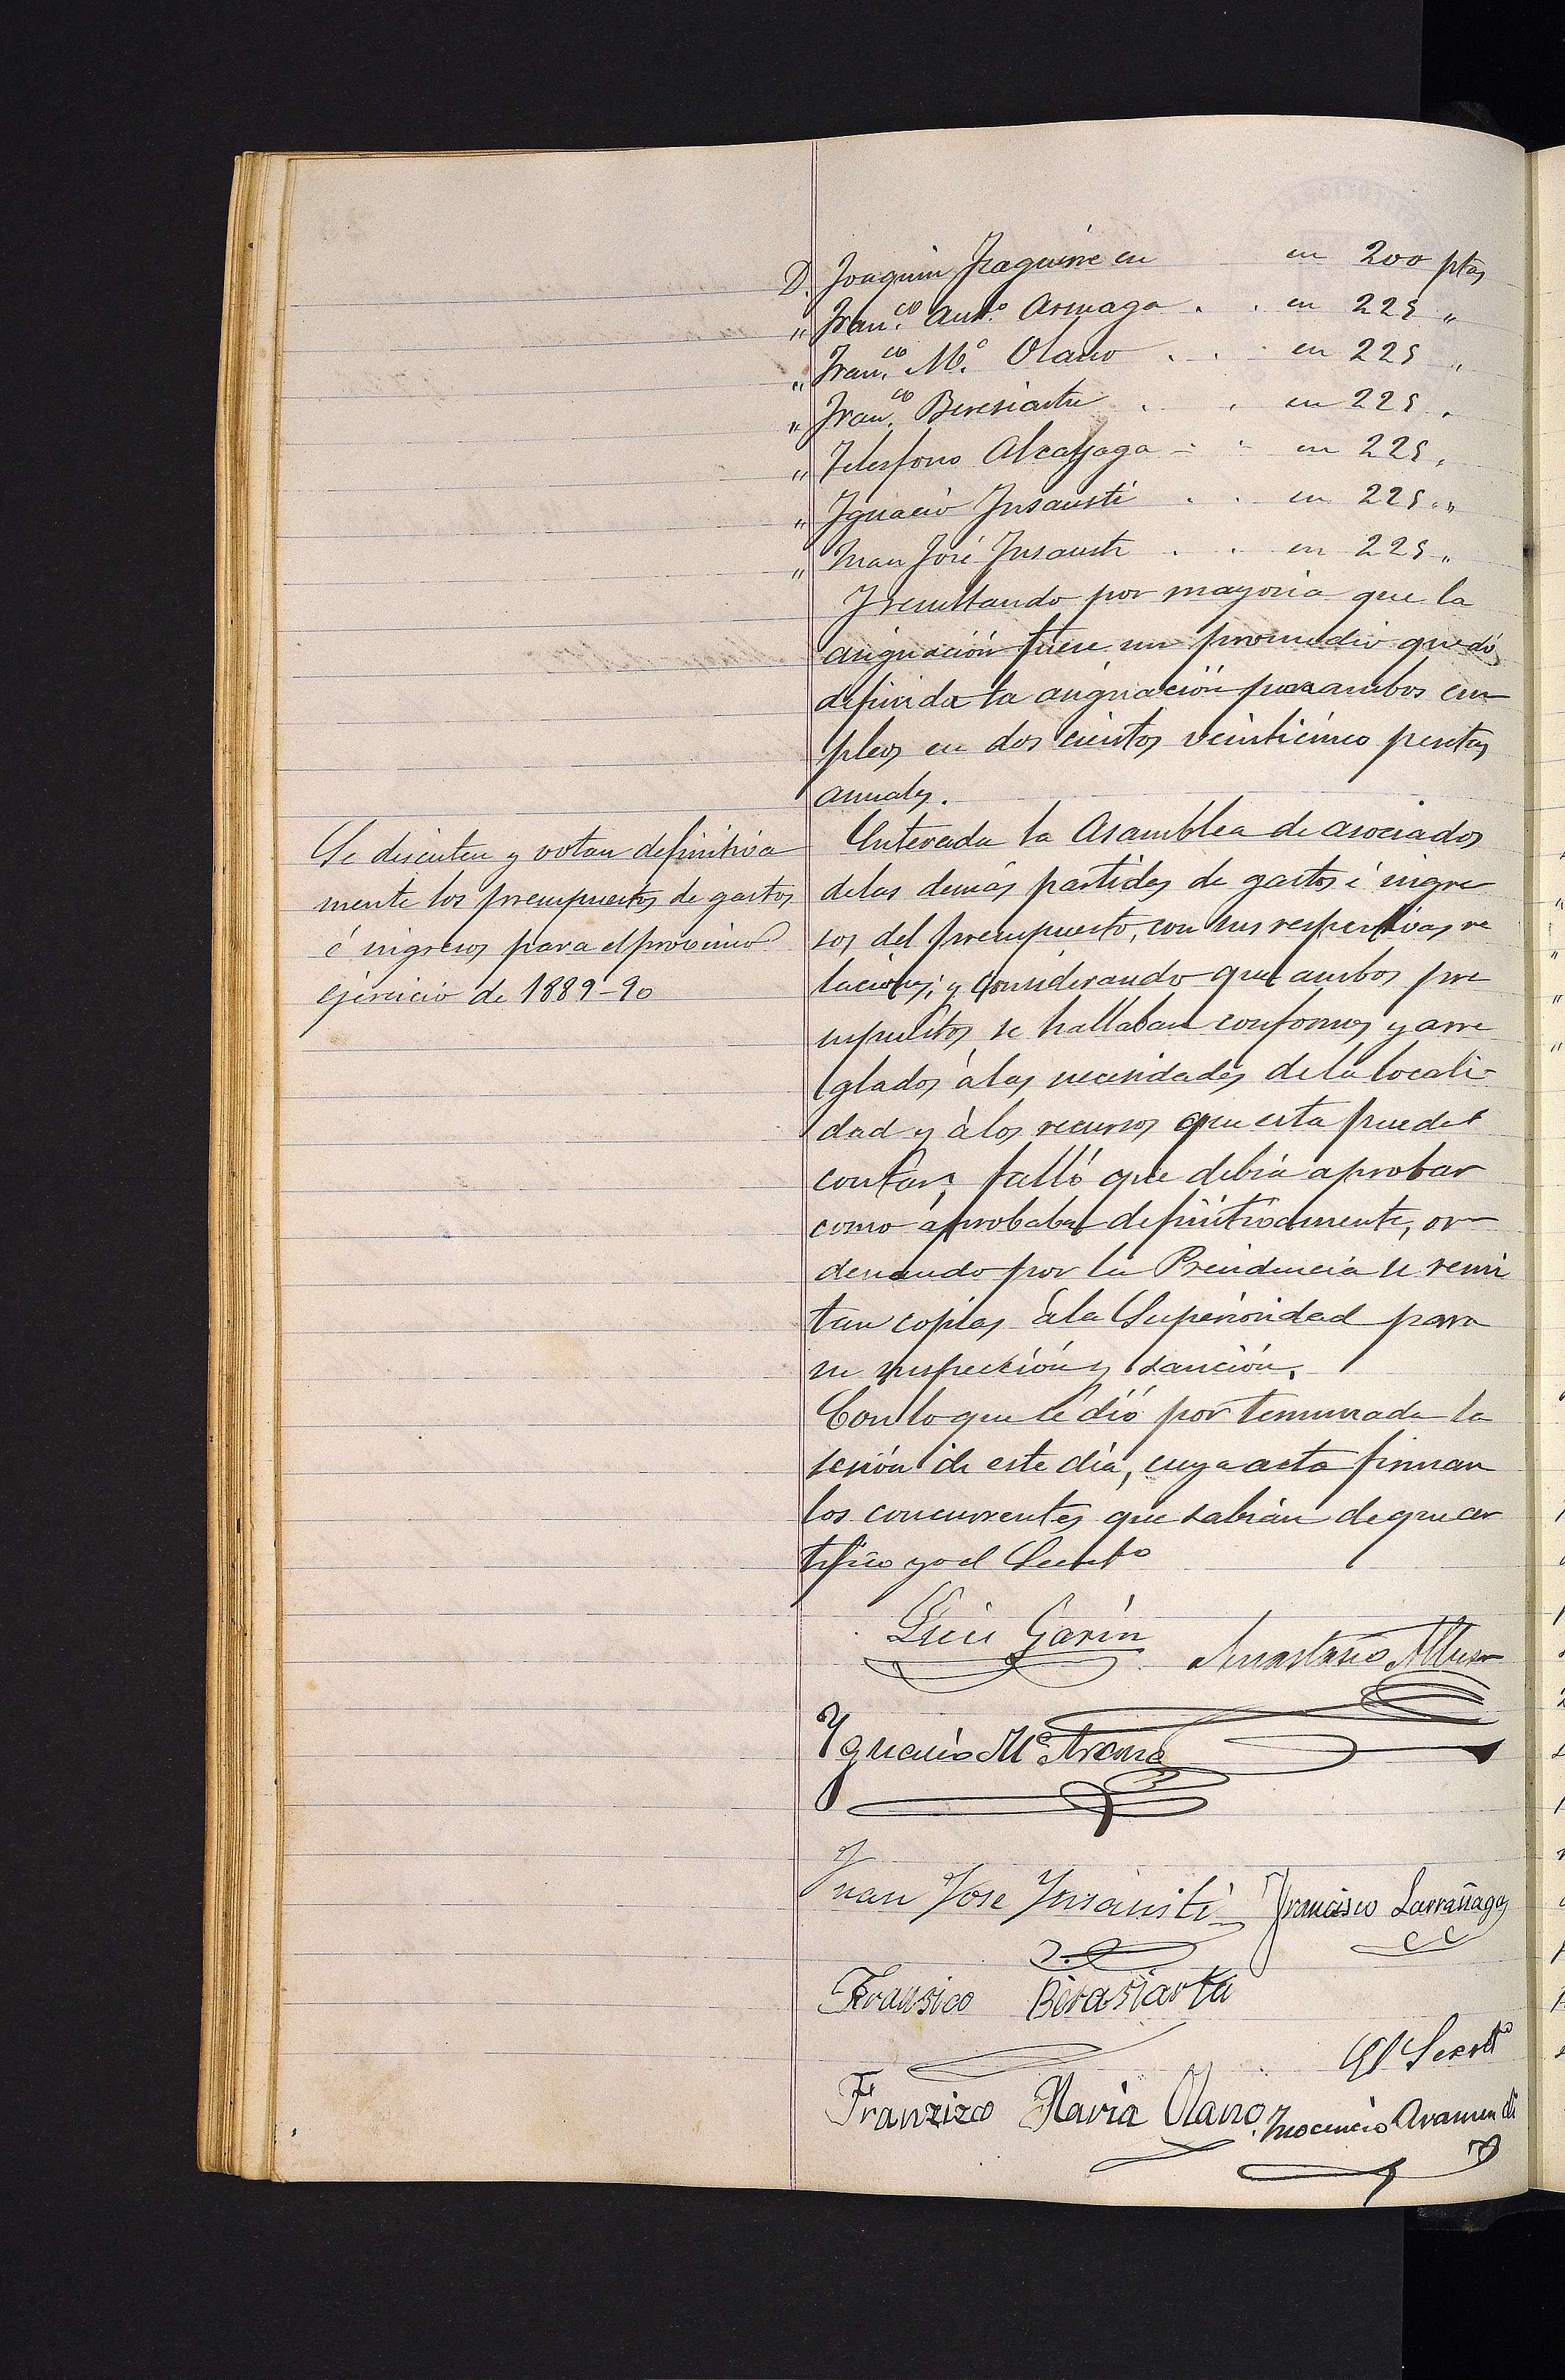 D. Joaquin Izaguirre en en 200 ptas
" Fran.co Ant.o Arinaga . . en 225 "
" Fran.co M.a Olano . . . en 225 "
" Fran.co Beresiartu . . en 225 "
" Telesforo Alcayaga . . en 225 "
" Ygnacio Insausti . . en 225 "
" Juan José Insausti . . en 225 "
Y resultando por mayoria que la
asignación fuese un promedio quedó
definida la asignación para ambos em
pleos en dos cientos veinticinco pesetas
anuales.
Se discuten y votan definitiva
mente los presupuestos de gastos
é ingresos para el proximo
ejercicio de 1889-90
Enterada la Asamblea de asociados
de las demás partidas de gastos é ingre
sos del presupuesto, con sus respectivas re
laciones; y considerando que ambos pre
supuestos se hallaban conformes y arre
glados á las necesidades de la locali-
dad y á los recursos que esta puede
contar; falló que debia aprobar
como aprobaba definitivamente, or
denando por la Presidencia se remi
tan copias á la Superioridad para
su inspección y sanción.
Con lo que se dió por terminada la
sesión de este día, cuya acta firman
los concurrentes que sabian de que cer
tifico yo el Secret.o
Luis Garín
Anastasio Altuna
Ygnacio M.a Arana
Juan Jose Insausti
Francisco Larrañaga
Fransico Birasiartu
El Secret.o
Franzizco Maria Olano
Inocencio Aramendi